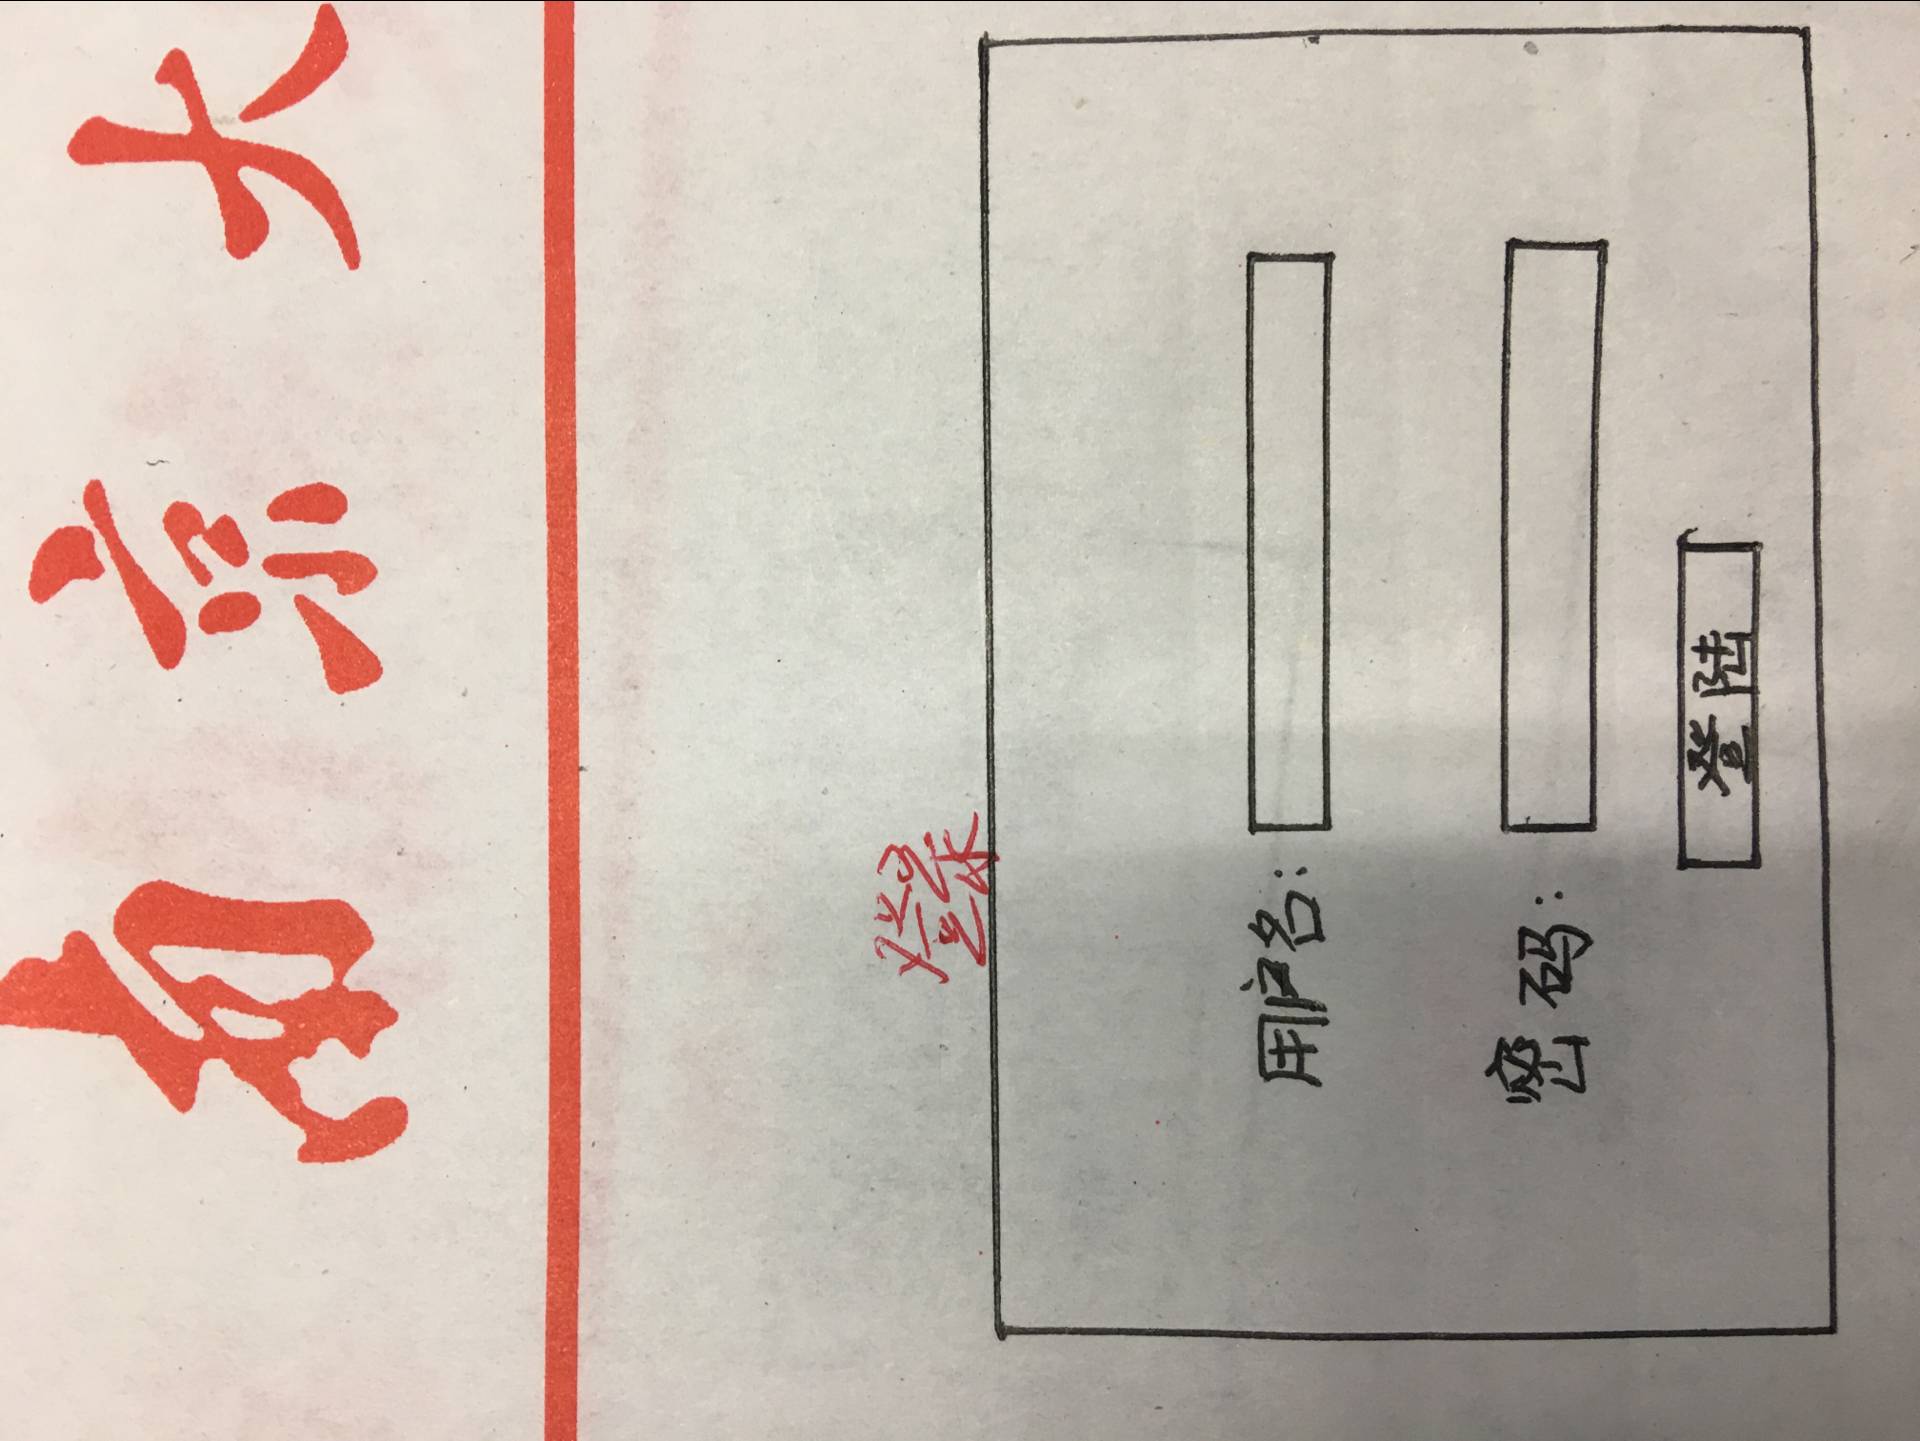 南京大
登录
用户名:
密码:
登陆